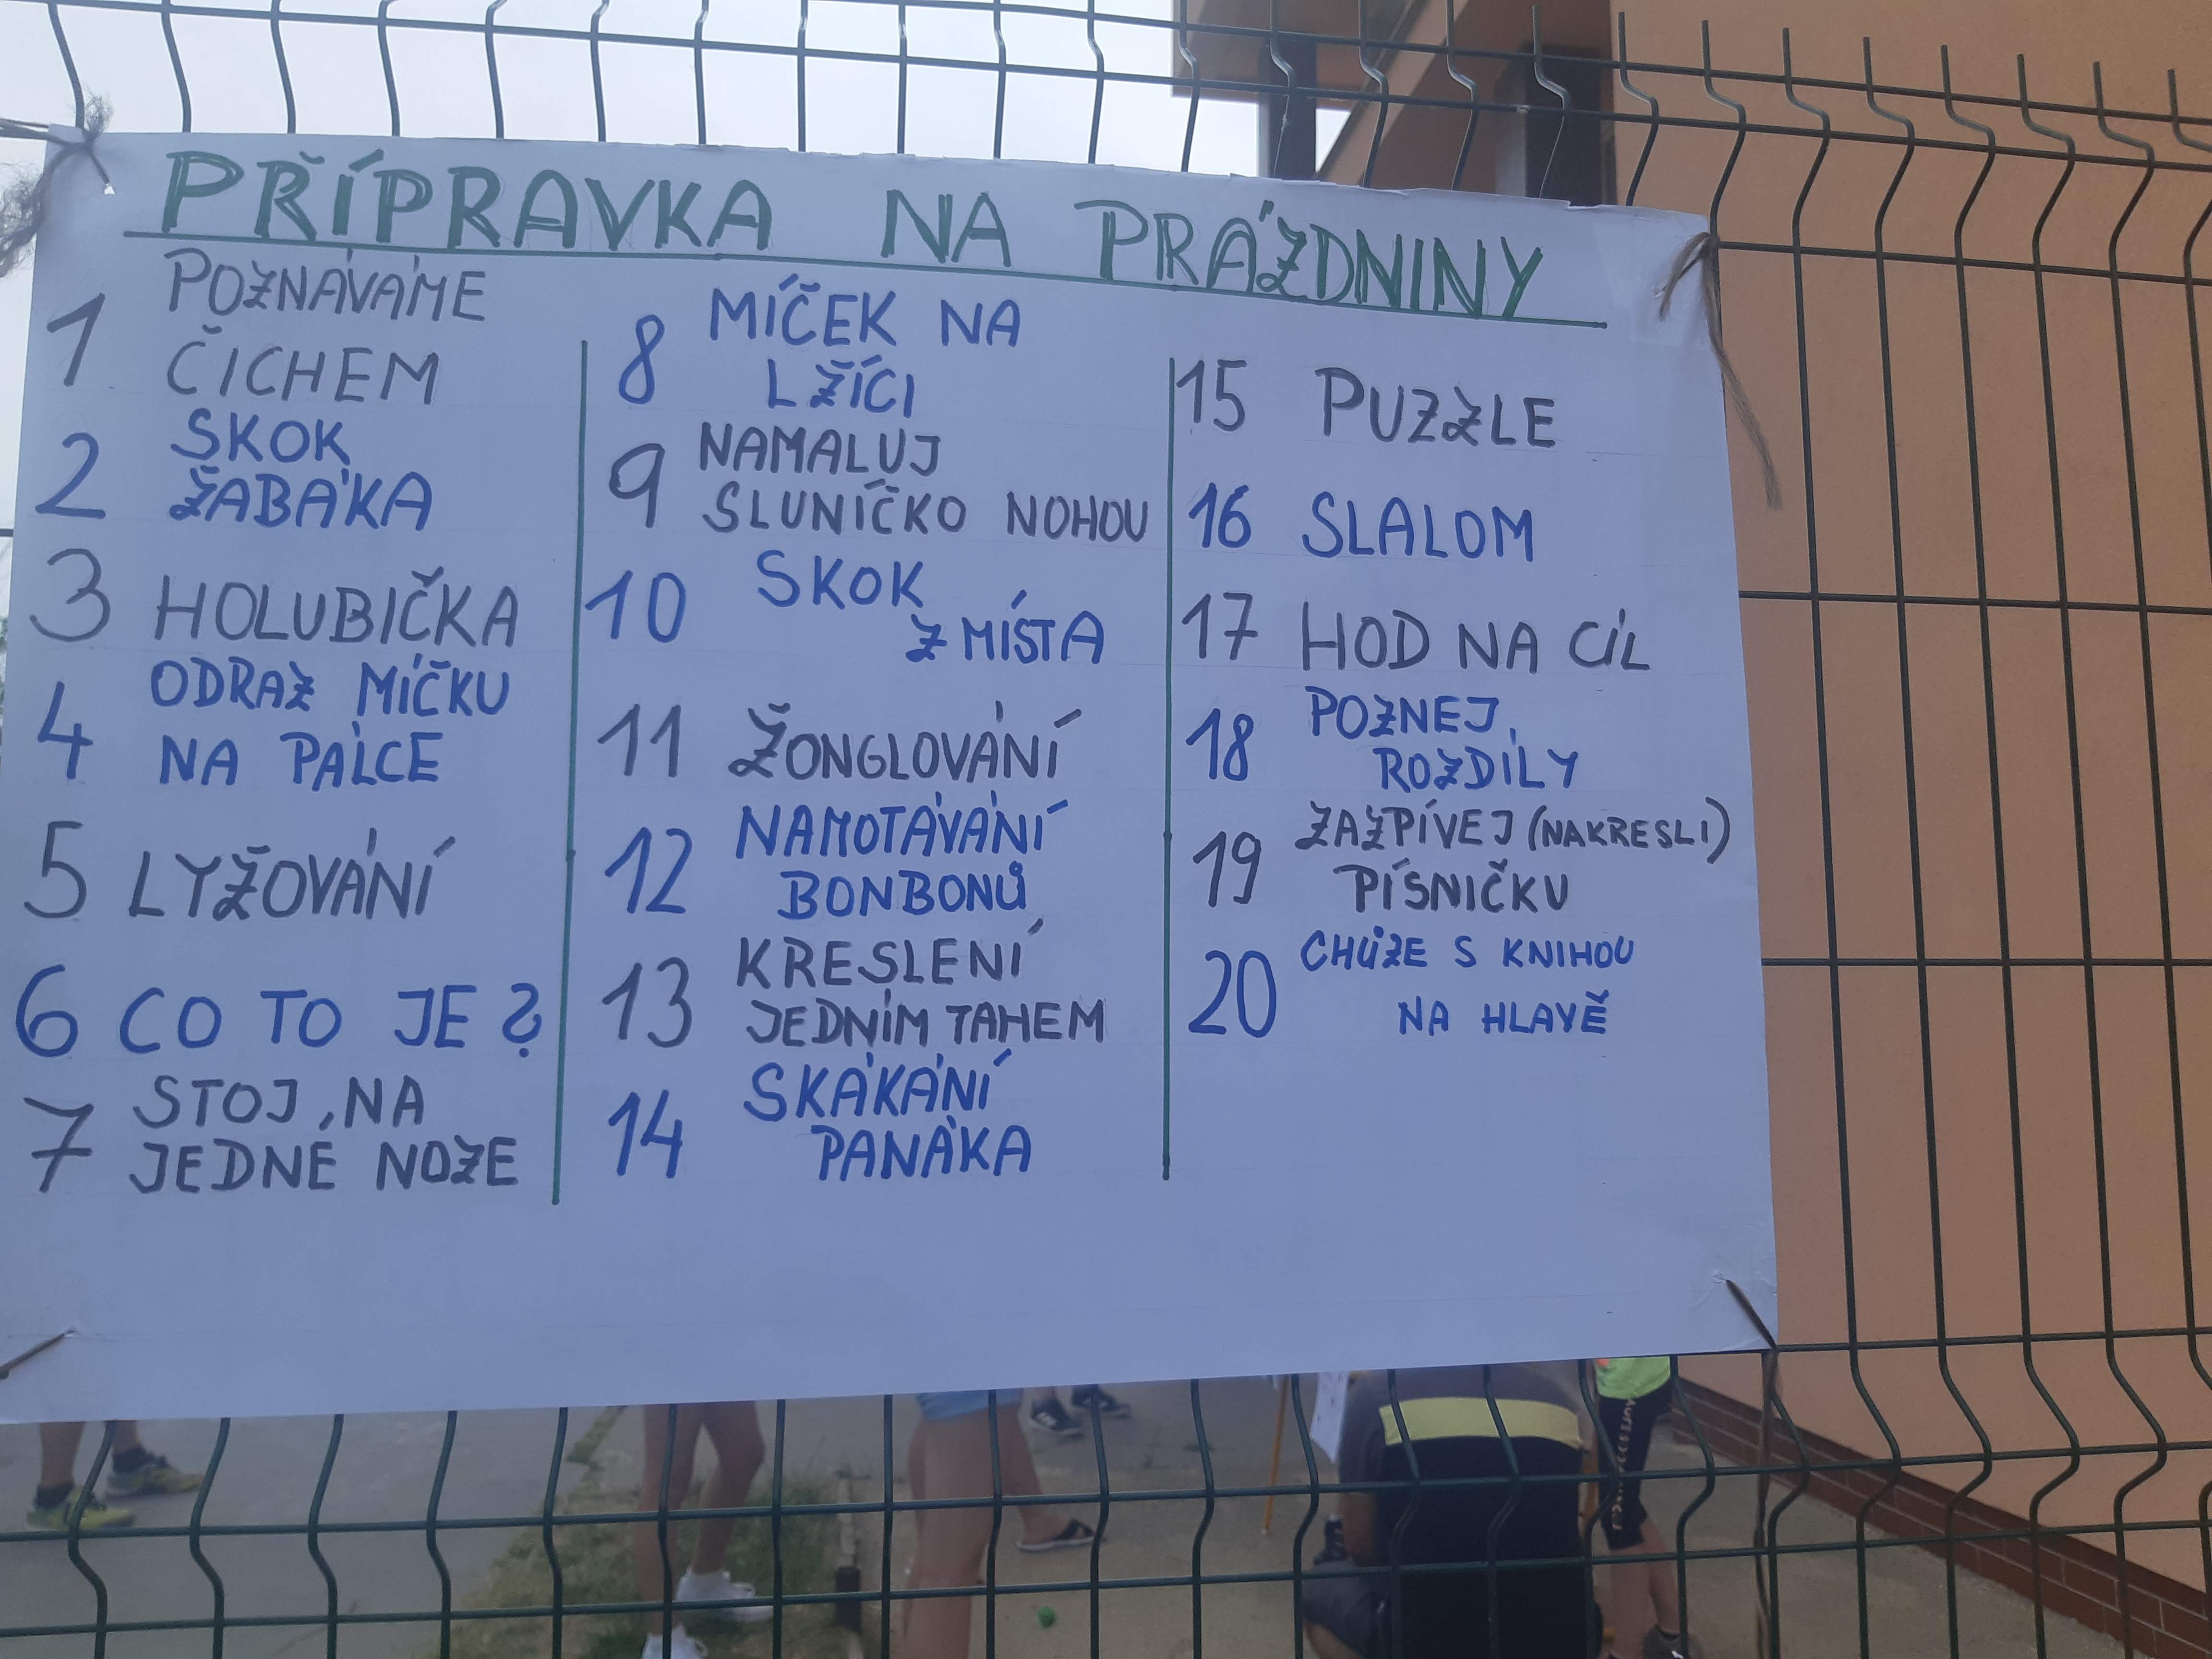 PŘÍPRAVKA NA PRÁZDNINY
1 POZNÁVÁME
ČICHEM
2 SKOK
ŽABÁKA
3 HOLUBIČKA
4 ODRAZ MÍČKU
NA PÁLCE
5 LYŽOVÁNÍ
6 CO TO JE ?
7 STOJ NA
JEDNÉ NOZE
8 MÍČEK NA
LŽÍCI
9 NAMALUJ
SLUNÍČKO NOHOU
10 SKOK
Z MÍSTA
11 ŽONGLOVÁNÍ
12 NAMOTÁVÁNÍ
BONBONŮ
13 KRESLENÍ
JEDNÍM TAHEM
14 SKÁKÁNÍ
PANÁKA
15 PUZZLE
16 SLALOM
17 HOD NA CÍL
18 POZNEJ
ROZDÍLY
19 ZAZPÍVEJ (NAKRESLI)
PÍSNIČKU
20 CHŮZE S KNIHOU
NA HLAVĚ